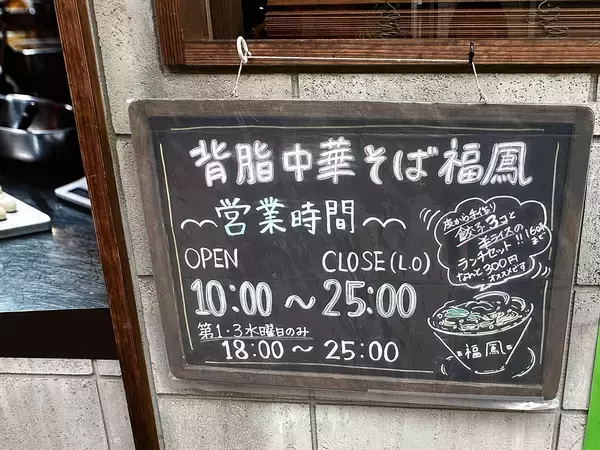 背脂中華そば福鳳
〜営業時間〜
OPEN CLOSE(L.O)
10:00 〜 25:00
第1・3水曜日のみ
18:00 〜 25:00
皮から手作り
餃子3コと
半ライスの
ランチセット!! 16:00まで
なんと300円
オススメです
=福鳳=